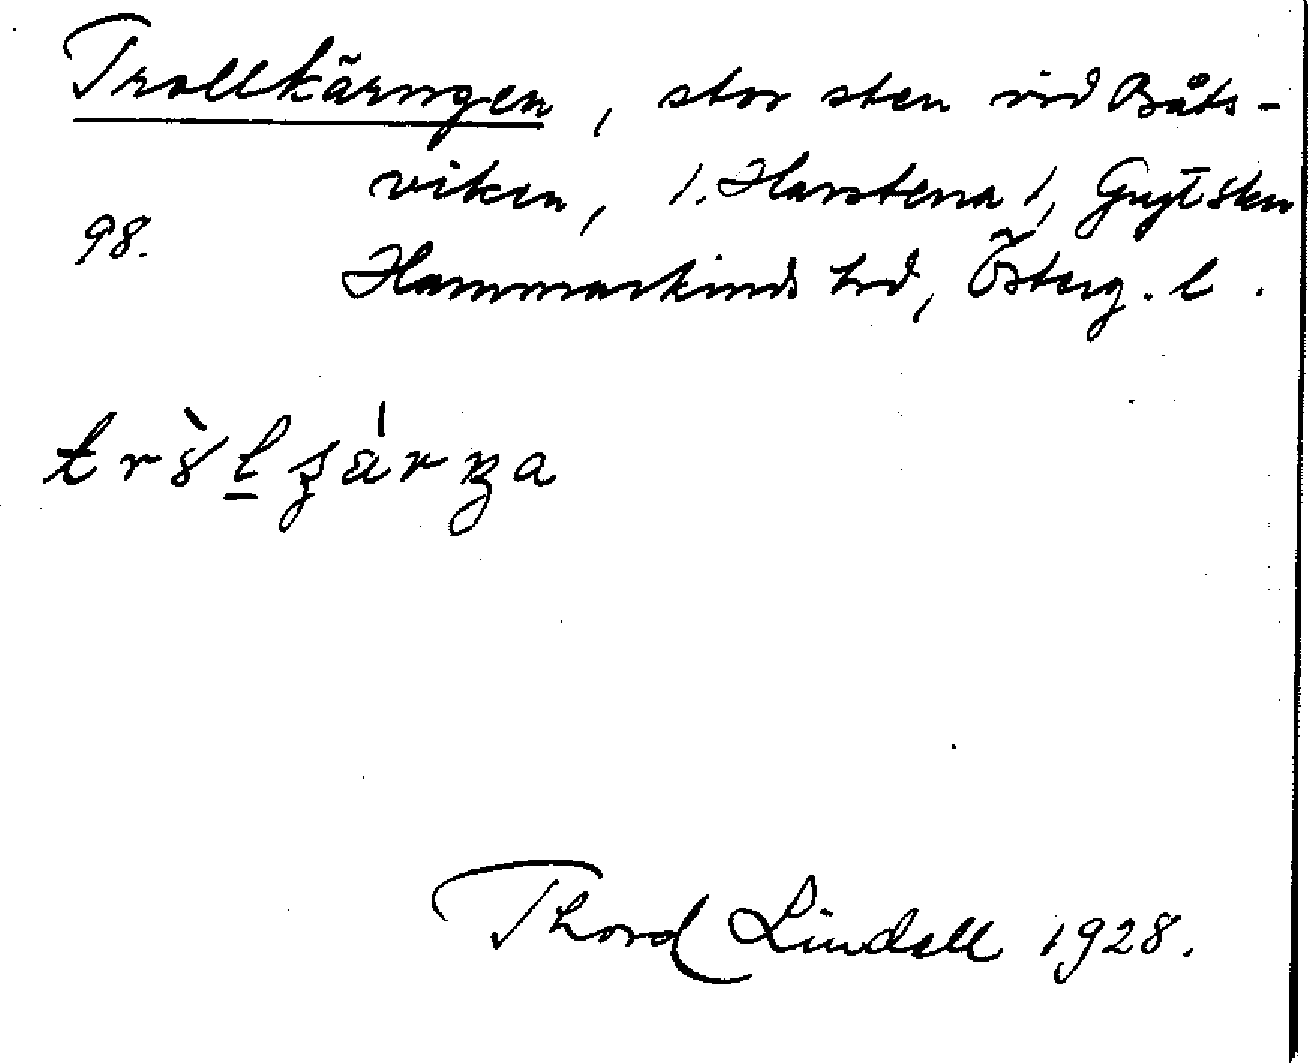 Trollkäringen, stor sten vid Båts-
viken, 1. Harstena 1, Gryts skn
98.
Hammarkinds hrd, Österg. l.
Thord Lindell 1928.